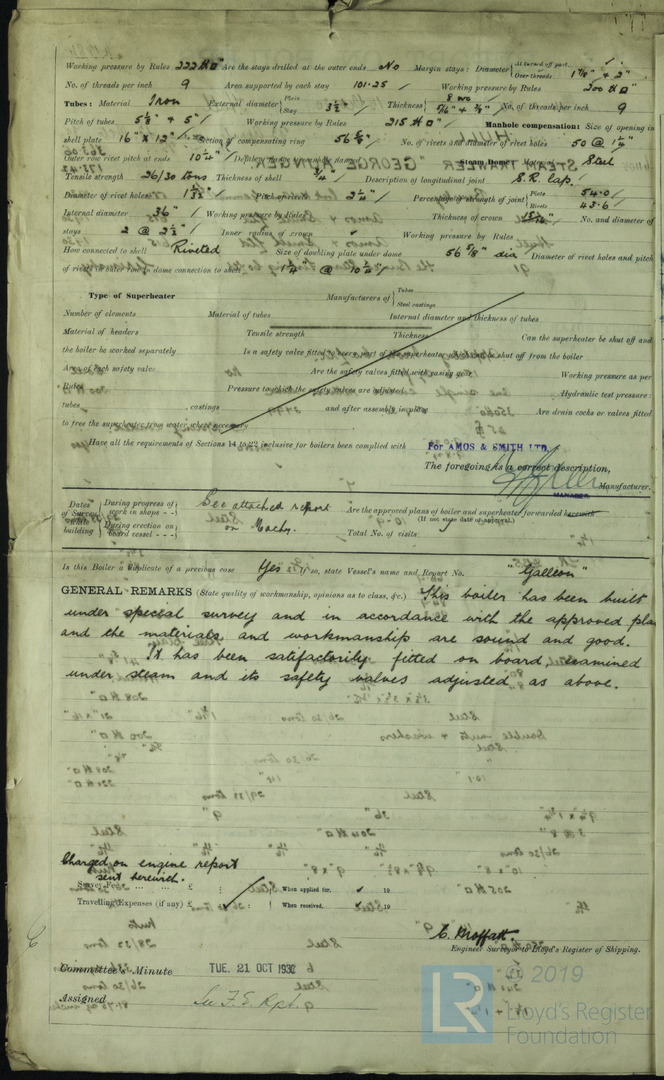 Working pressure by Rules 222 lb □" Are the stays drilled at the outer ends No Margin stays: Diameter { At turned off part, Over threads 1 7/8" + 2"
No. of threads per inch 9 Area supported by each stay 101.25 Working pressure by Rules 200 lb □"
Tubes: Material Iron External diameter { Plain Stay 3 1/2" Thickness { 8 WG 5/16" + 3/8" No. of threads per inch 9
Pitch of tubes 5 1/8" + 5" Working pressure by Rules 215 lb □" Manhole compensation: Size of opening in
shell plate 16" x 12" Section of compensating ring No. of rivets and diameter of rivet holes 50 @ 1 1/4"
Outer row rivet pitch at ends 10 1/4" Steam Dome: Material Steel
Tensile strength 26/30 tons Thickness of shell 3/4" Description of longitudinal joint S.R. lap.
Diameter of rivet holes Pitch of rivets 2 1/4" Percentage of strength of joint { Plate 54.0 Rivets 43.6
Internal diameter 36" Working pressure by Rules Thickness of crown 15/16" No. and diameter of
stays 2 @ 2 1/2" Inner radius of crown ✓ Working pressure by Rules
How connected to shell Riveted Size of doubling plate under dome 56 5/8" dia Diameter of rivet holes and pitch
of rivets in outer row in dome connection to shell 1 1/4" @ 10 1/4"
Type of Superheater Manufacturers of { Tubes Steel castings
Number of elements Material of tubes Internal diameter and thickness of tubes
Material of headers Tensile strength Thickness Can the superheater be shut off and
the boiler be worked separately Is a safety valve fitted to every part of the superheater which can be shut off from the boiler
Area of each safety valve Are the safety valves fitted with easing gear Working pressure as per
Rules Pressure to which the safety valves are adjusted Hydraulic test pressure:
tubes castings and after assembly in place Are drain cocks or valves fitted
to free the superheater from water where necessary
Have all the requirements of Sections 14 to 22 inclusive for boilers been complied with
For AMOS & SMITH LTD.
The foregoing is a correct description,
MANAGER Manufacturer.
Dates of Survey while building { During progress of work in shops - - During erection on board vessel - - - } See attached report on Machy. Are the approved plans of boiler and superheater forwarded herewith (If not state date of approval.)
Total No. of visits
Is this Boiler a duplicate of a previous case Yes If so, state Vessel's name and Report No. "Galleon"
GENERAL REMARKS (State quality of workmanship, opinions as to class, &c.) This boiler has been built
under special survey and in accordance with the approved plan
and the materials and workmanship are sound and good.
It has been satisfactorily fitted on board, examined
under steam and its safety valves adjusted as above.
Charged on engine report
sent herewith.
Survey Fee ... ... £ : : When applied for, 19
Travelling Expenses (if any) £ : : When received, 19
C. Moffatt.
Engineer Surveyor to Lloyd's Register of Shipping.
Committee's Minute TUE. 21 OCT 1930
Assigned See F.E. Rpt.
LR © 2019
Lloyd's Register
Foundation